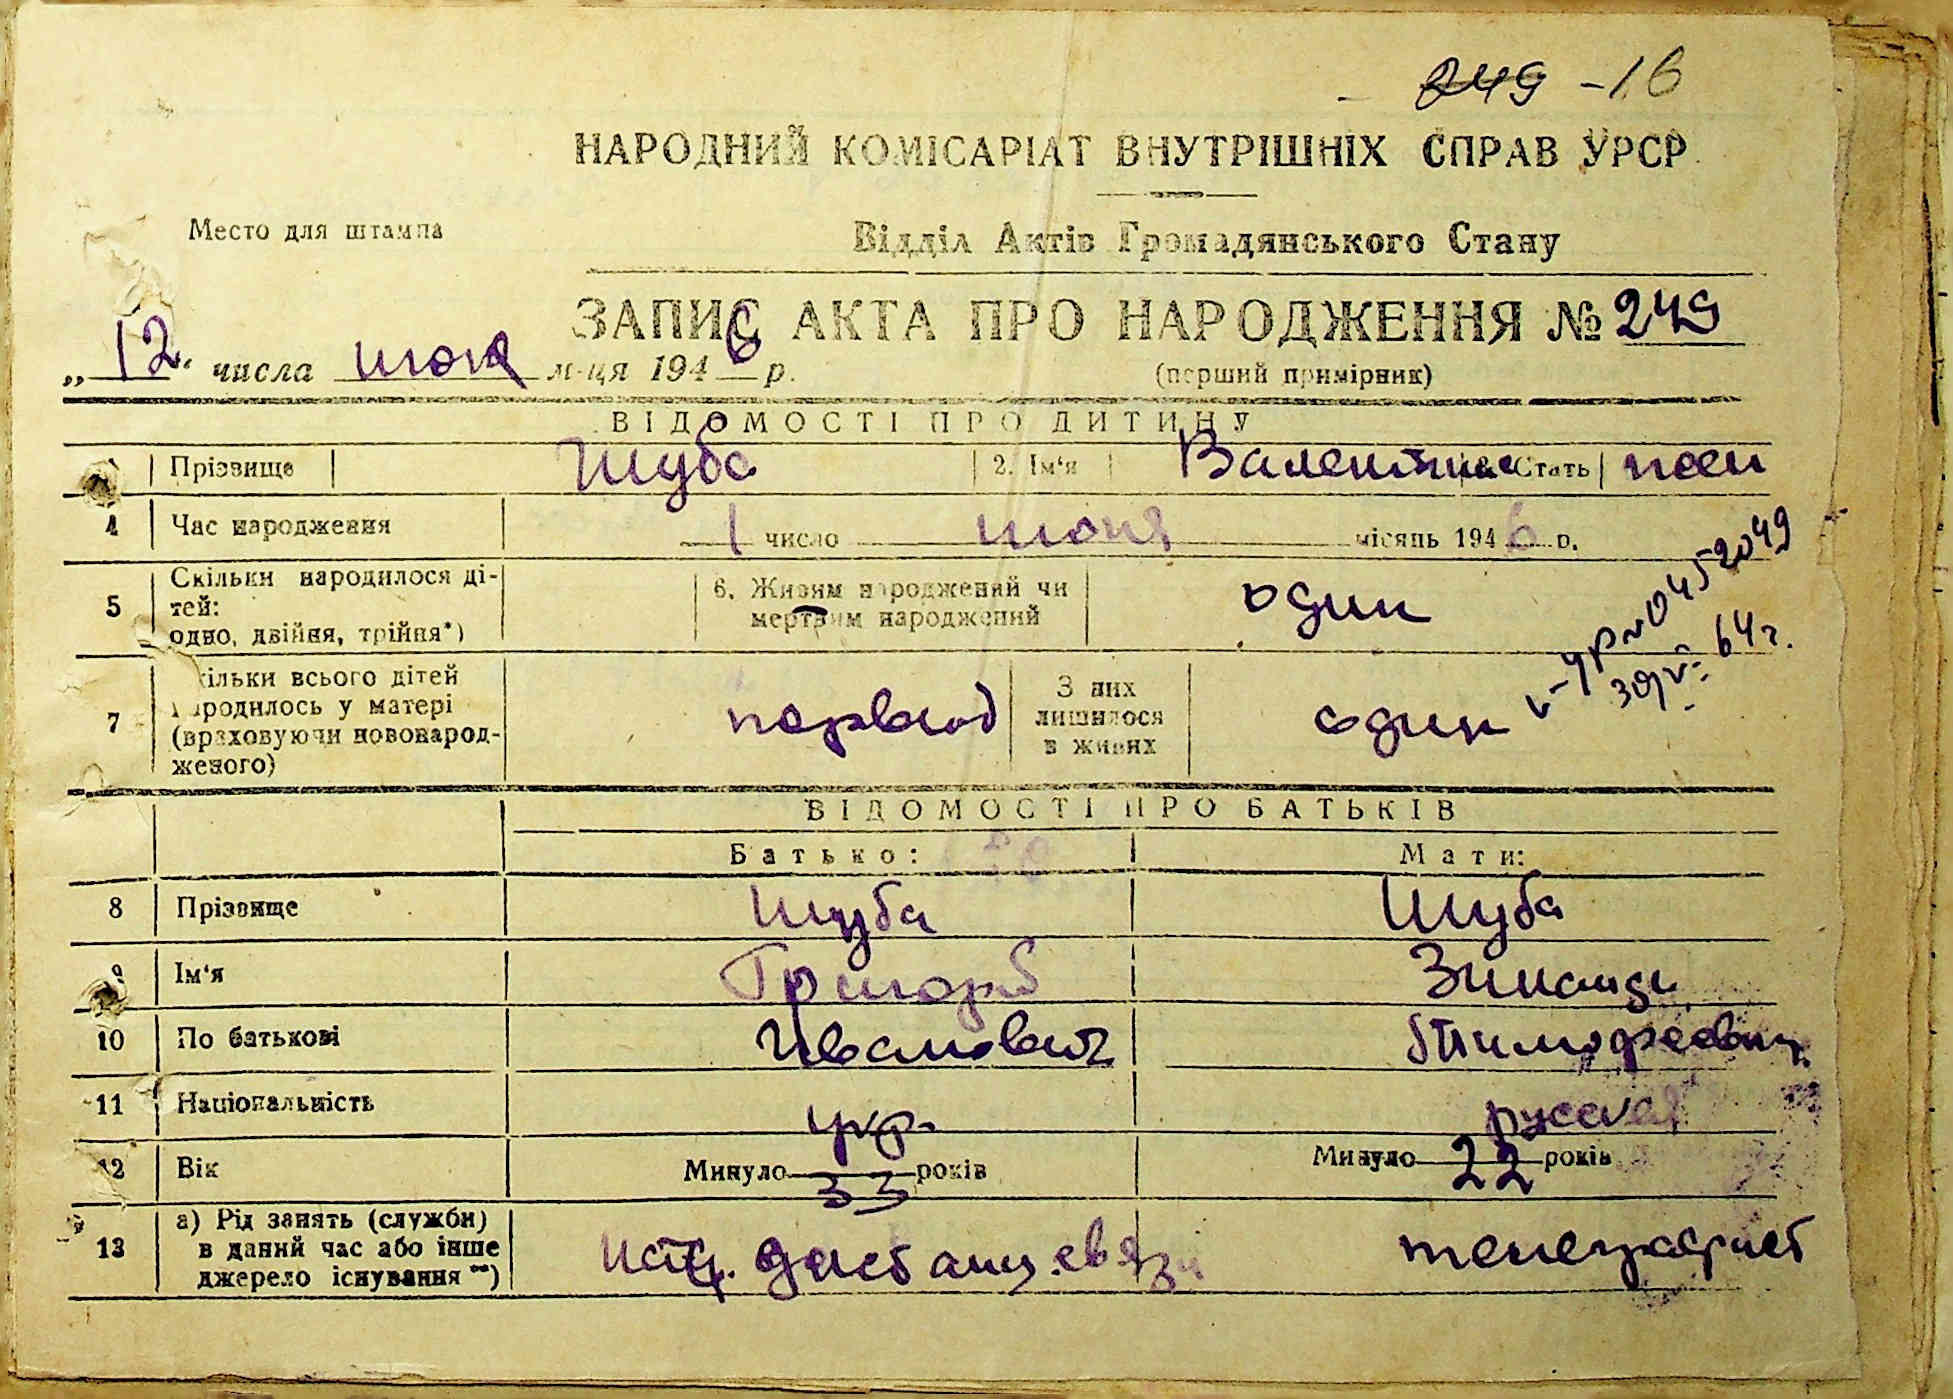 249 -16
НАРОДНИЙ КОМІСАРІАТ ВНУТРІШНІХ СПРАВ УРСР
Место для штампа
Відділ Актів Громадянського Стану
ЗАПИС АКТА ПРО НАРОДЖЕННЯ № 249
„12“ числа июня м-ця 1946 р.
(перший примірник)
ВІДОМОСТІ ПРО ДИТИНУ
Прізвище Шуба 2. Ім‘я Валентина Стать жен
4 Час народження 1 число июня місяць 1946 р.
5 Скільки народилося дітей: одно, двійня, трійня*) 6. Живим народжений чи мертвим народжений один
0452049
64 г.
7 Скільки всього дітей народилось у матері (враховуючи новонародженого) первый З них лишилося в живих один
ВІДОМОСТІ ПРО БАТЬКІВ
Батько: Мати:
8 Прізвище Шуба Шуба
9 Ім‘я Григорий Зинаида
10 По батькові Иванович Тимофеевна
11 Національність укр. русская
12 Вік Минуло 33 років Минуло 22 років
13 а) Рід занять (служби) в даний час або інше джерело існування **) дист связи телеграфист